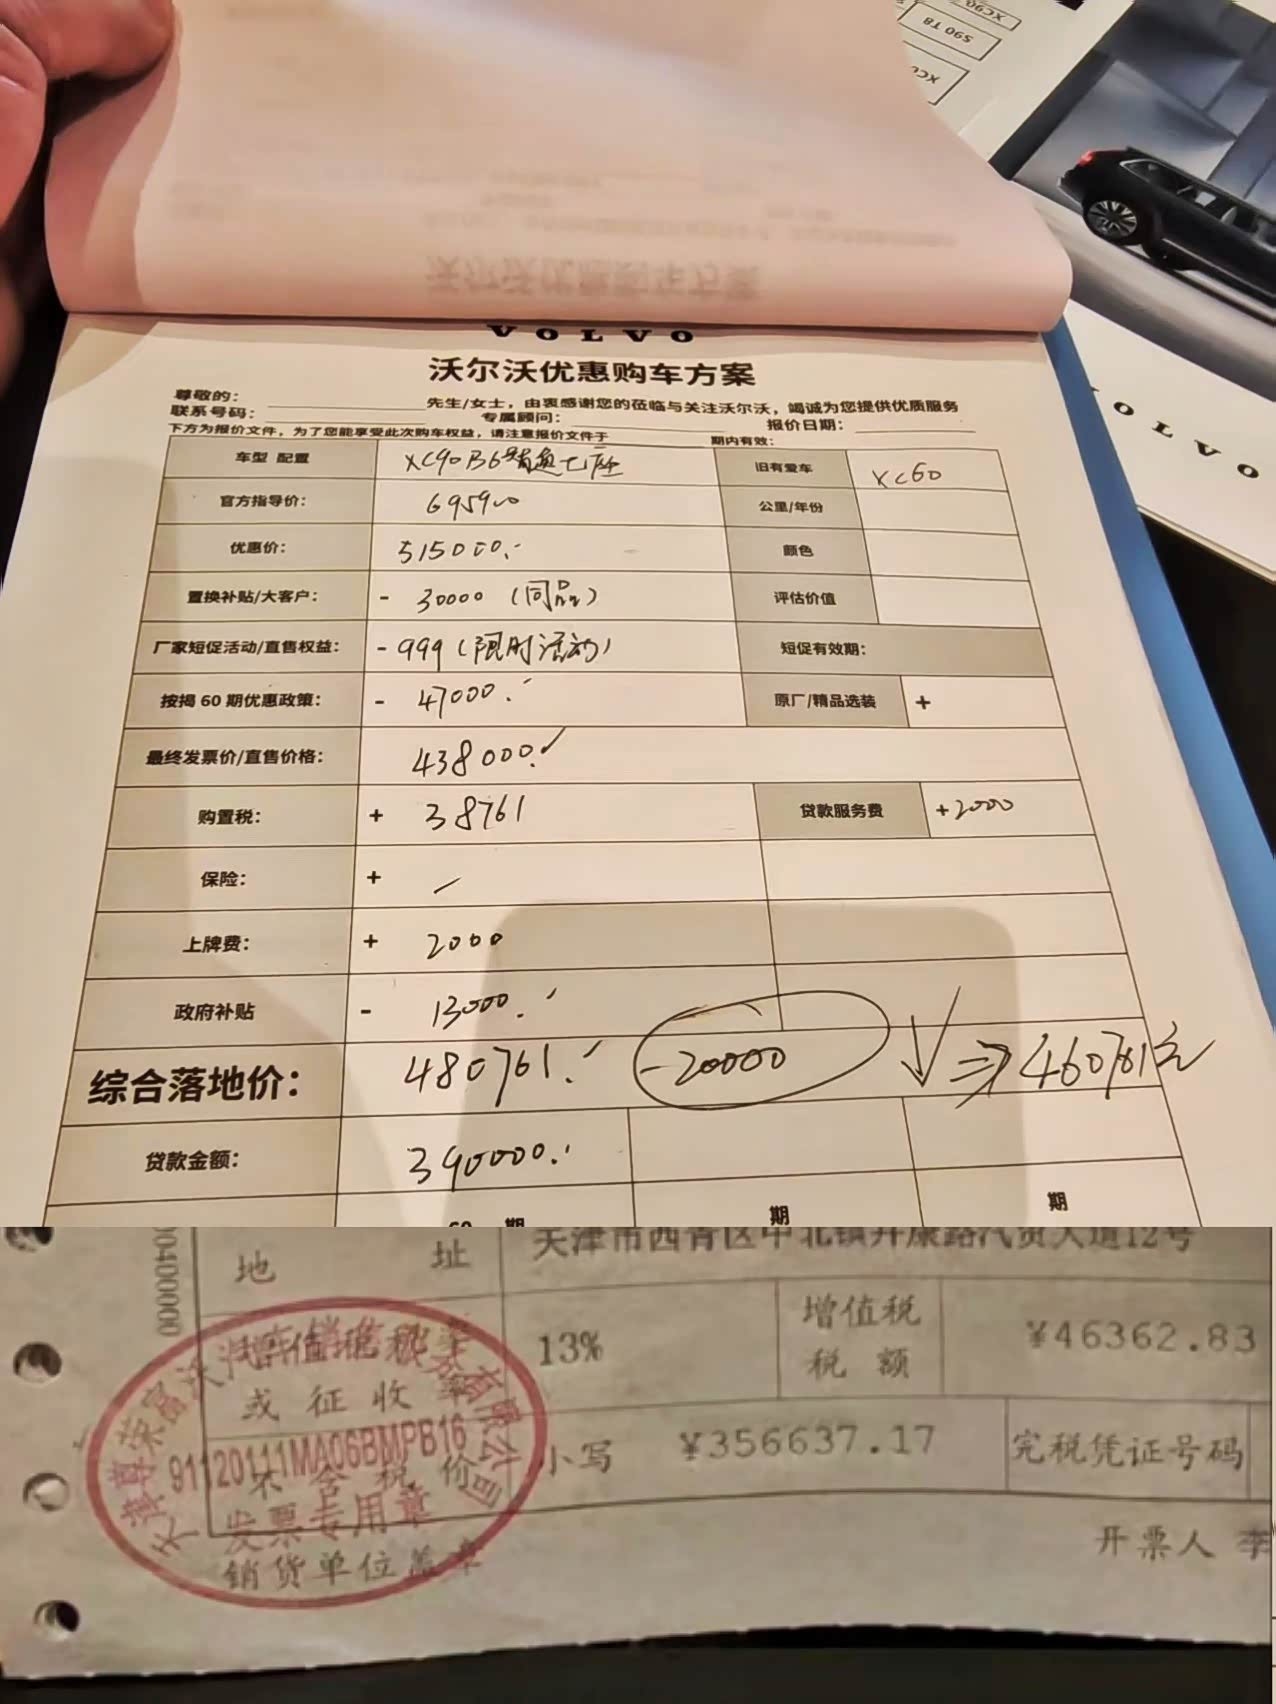 XC90
S90 T8
VOLVO
VOLVO
沃尔沃优惠购车方案
尊敬的： 先生/女士，由衷感谢您的莅临与关注沃尔沃，竭诚为您提供优质服务
联系号码： 专属顾问： 报价日期：
下方为报价文件，为了您能享受此次购车权益，请注意报价文件于 期内有效：
车型 配置 XC90 B6智逸七座 旧有爱车 XC60
官方指导价： 695900 公里/年份
优惠价： 515000. 颜色
置换补贴/大客户： - 30000（同品） 评估价值
厂家短促活动/直售权益： -999（限时活动） 短促有效期：
按揭 60 期优惠政策： - 47000. 原厂/精品选装 +
最终发票价/直售价格： 438000.
购置税： + 38761 贷款服务费 +2000
保险： +
上牌费： + 2000
政府补贴 - 13000.
综合落地价： 480761. -20000 ⇒ 460761元
贷款金额： 390000.
60 期 期 期
00400000
地 址 天津市西青区中北镇开康路汽贸大道12号
增值税税率 或征收率 13% 增值税 税额 ¥46362.83
不含税价 小写 ¥356637.17 完税凭证号码
91120111MA06BMPB16
发票专用章
销货单位盖章
开票人 李